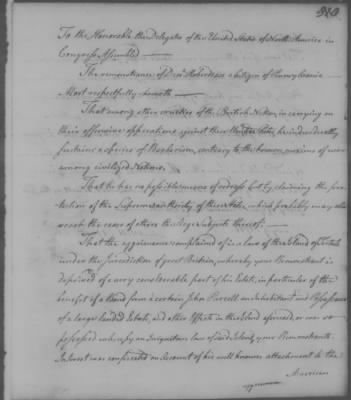 To the Honorable the Delegates of the United States of North America in
Congress Assembled
The remonstrance of a Citizen of Pennsylvania
Most respectfully sheweth
That among other cruelties of the British Nation, in carrying on
their offensive opperations against these United States, have indirectly
a species of Barbarism, contrary to the known maxims of war
among civilized Nations.
That he has no possible means of redress but by claiming the pro-
tection of the Supreme authority of these States, which probably may also
reach the cases of others the liege Subjects thereof
That the aggrievance complained of is a law of the Island of Tortola
under the Jurisdiction of great Britain, whereby your Remonstrant is
deprived of a very considerable part of his Estate, in particular of the
benefit of a Bond from a certain John Purcell an Inhabitant and Possessor
of a large landed Estate, and other Effects in the Island aforesaid, or was so
possessed when by an Iniquitous law of said Island, your Remonstrants
Interest was confiscated on Account of his well known attachment to the
American